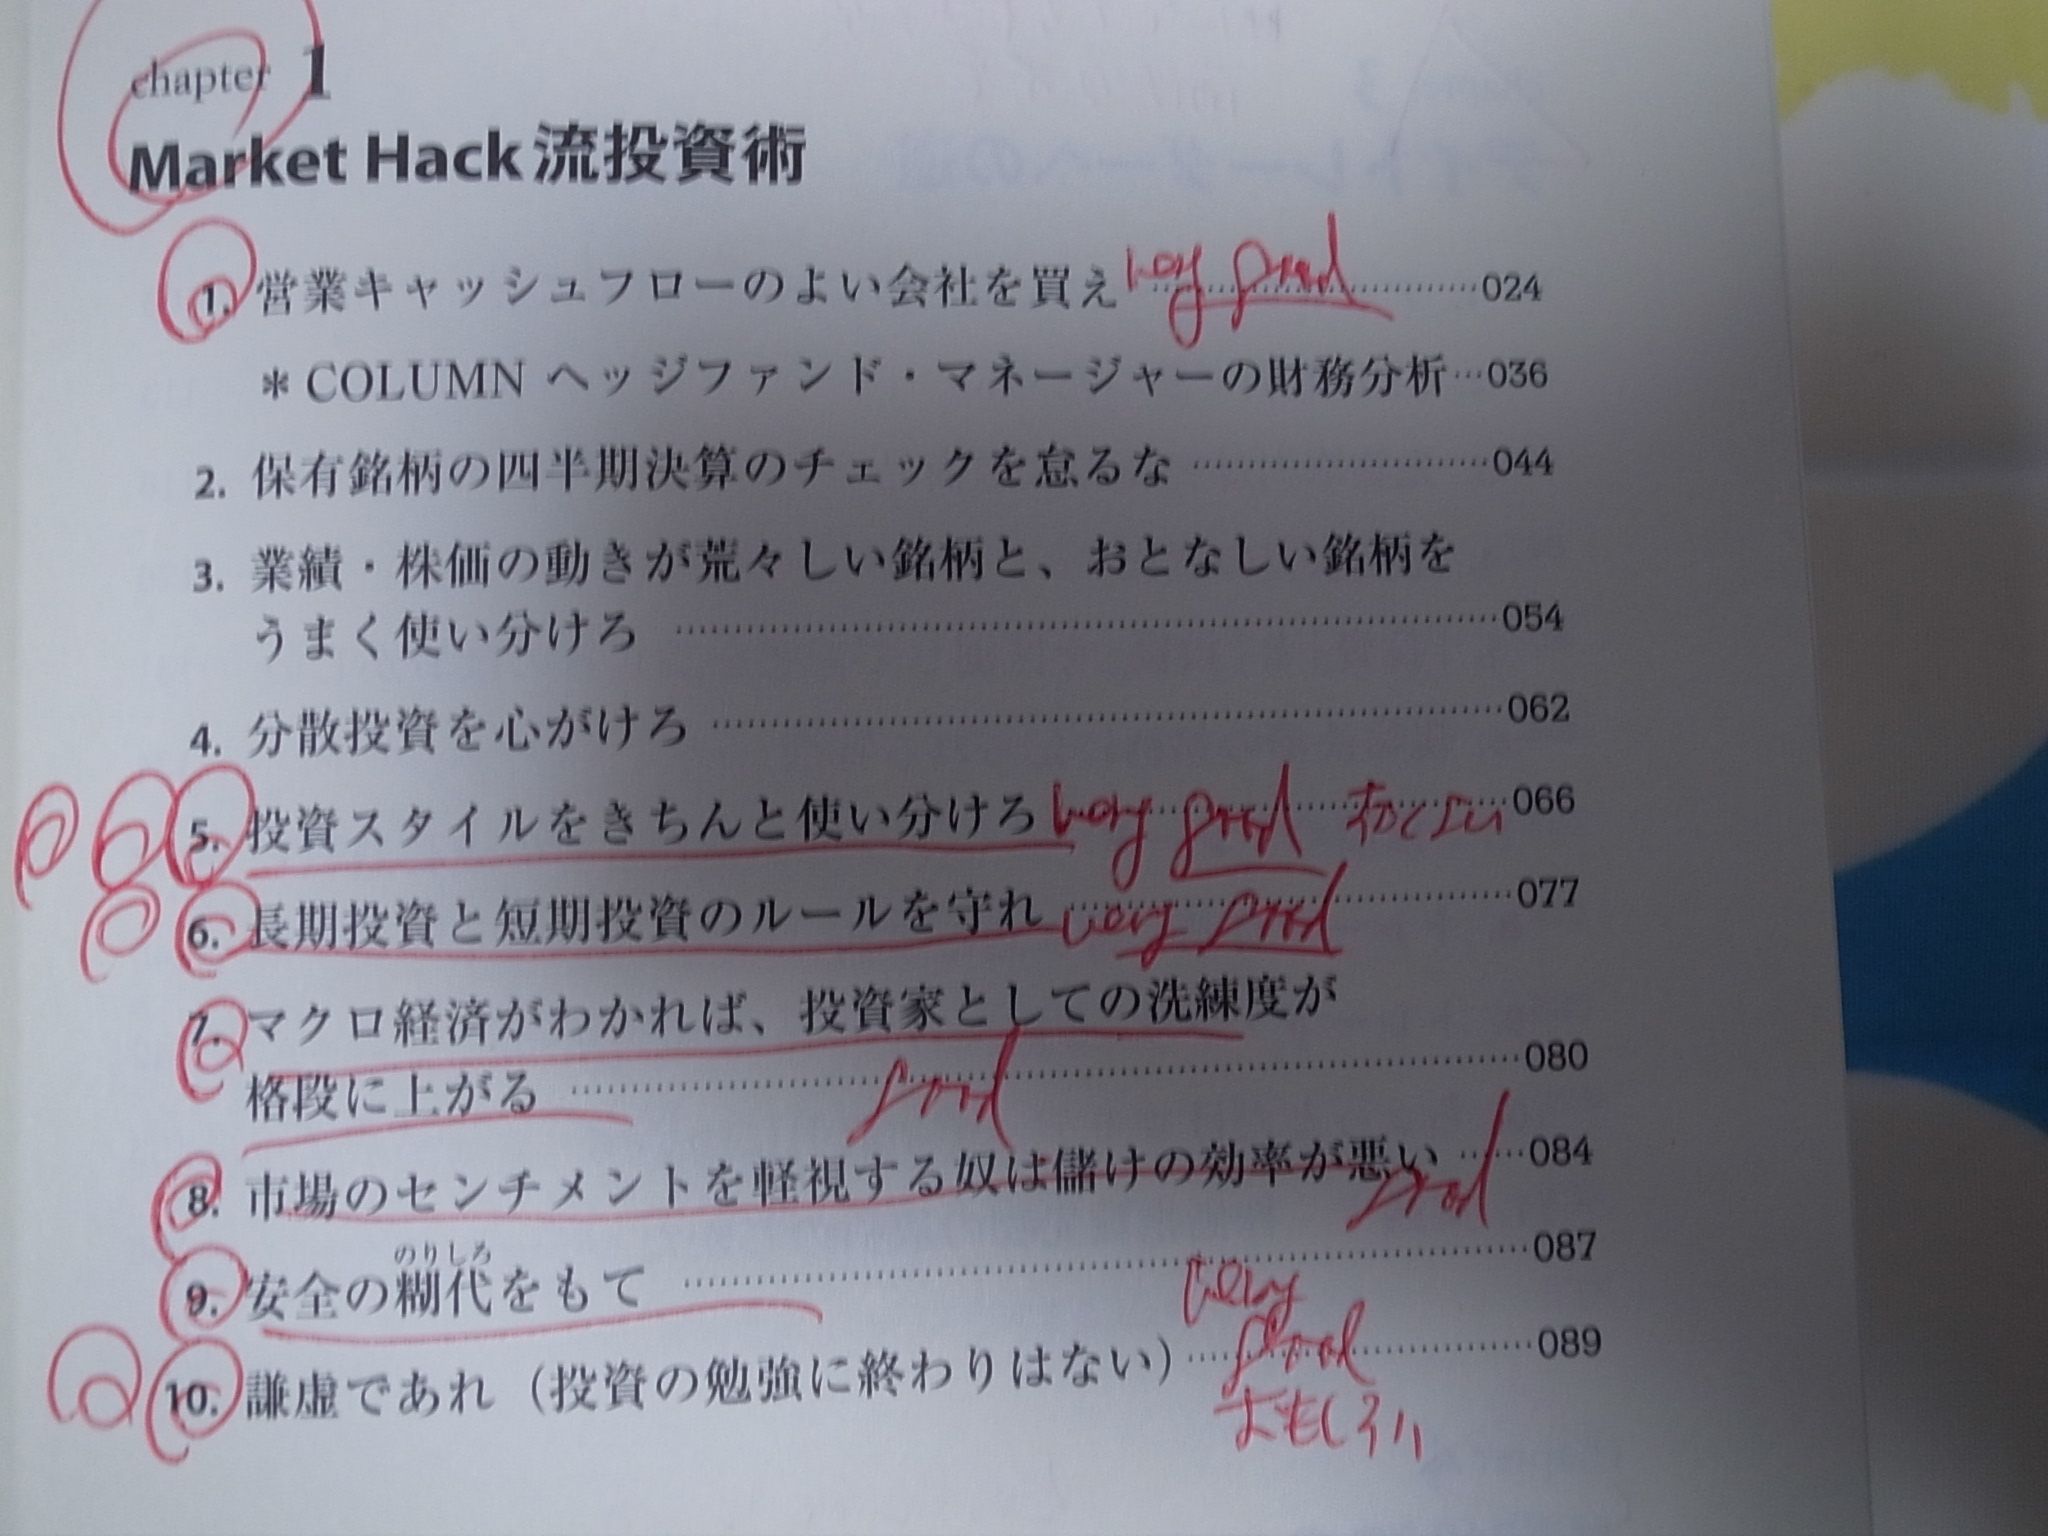 chapter 1
Market Hack流投資術
1. 営業キャッシュフローのよい会社を買え very good 024
＊COLUMN ヘッジファンド・マネージャーの財務分析 036
2. 保有銘柄の四半期決算のチェックを怠るな 044
3. 業績・株価の動きが荒々しい銘柄と、おとなしい銘柄を
うまく使い分けろ 054
4. 分散投資を心がけろ 062
5. 投資スタイルをきちんと使い分けろ very good 066
6. 長期投資と短期投資のルールを守れ very good 077
7. マクロ経済がわかれば、投資家としての洗練度が
格段に上がる good 080
8. 市場のセンチメントを軽視する奴は儲けの効率が悪い good 084
のりしろ
9. 安全の糊代をもて 087
very
10. 謙虚であれ（投資の勉強に終わりはない） good 089
おもしろい